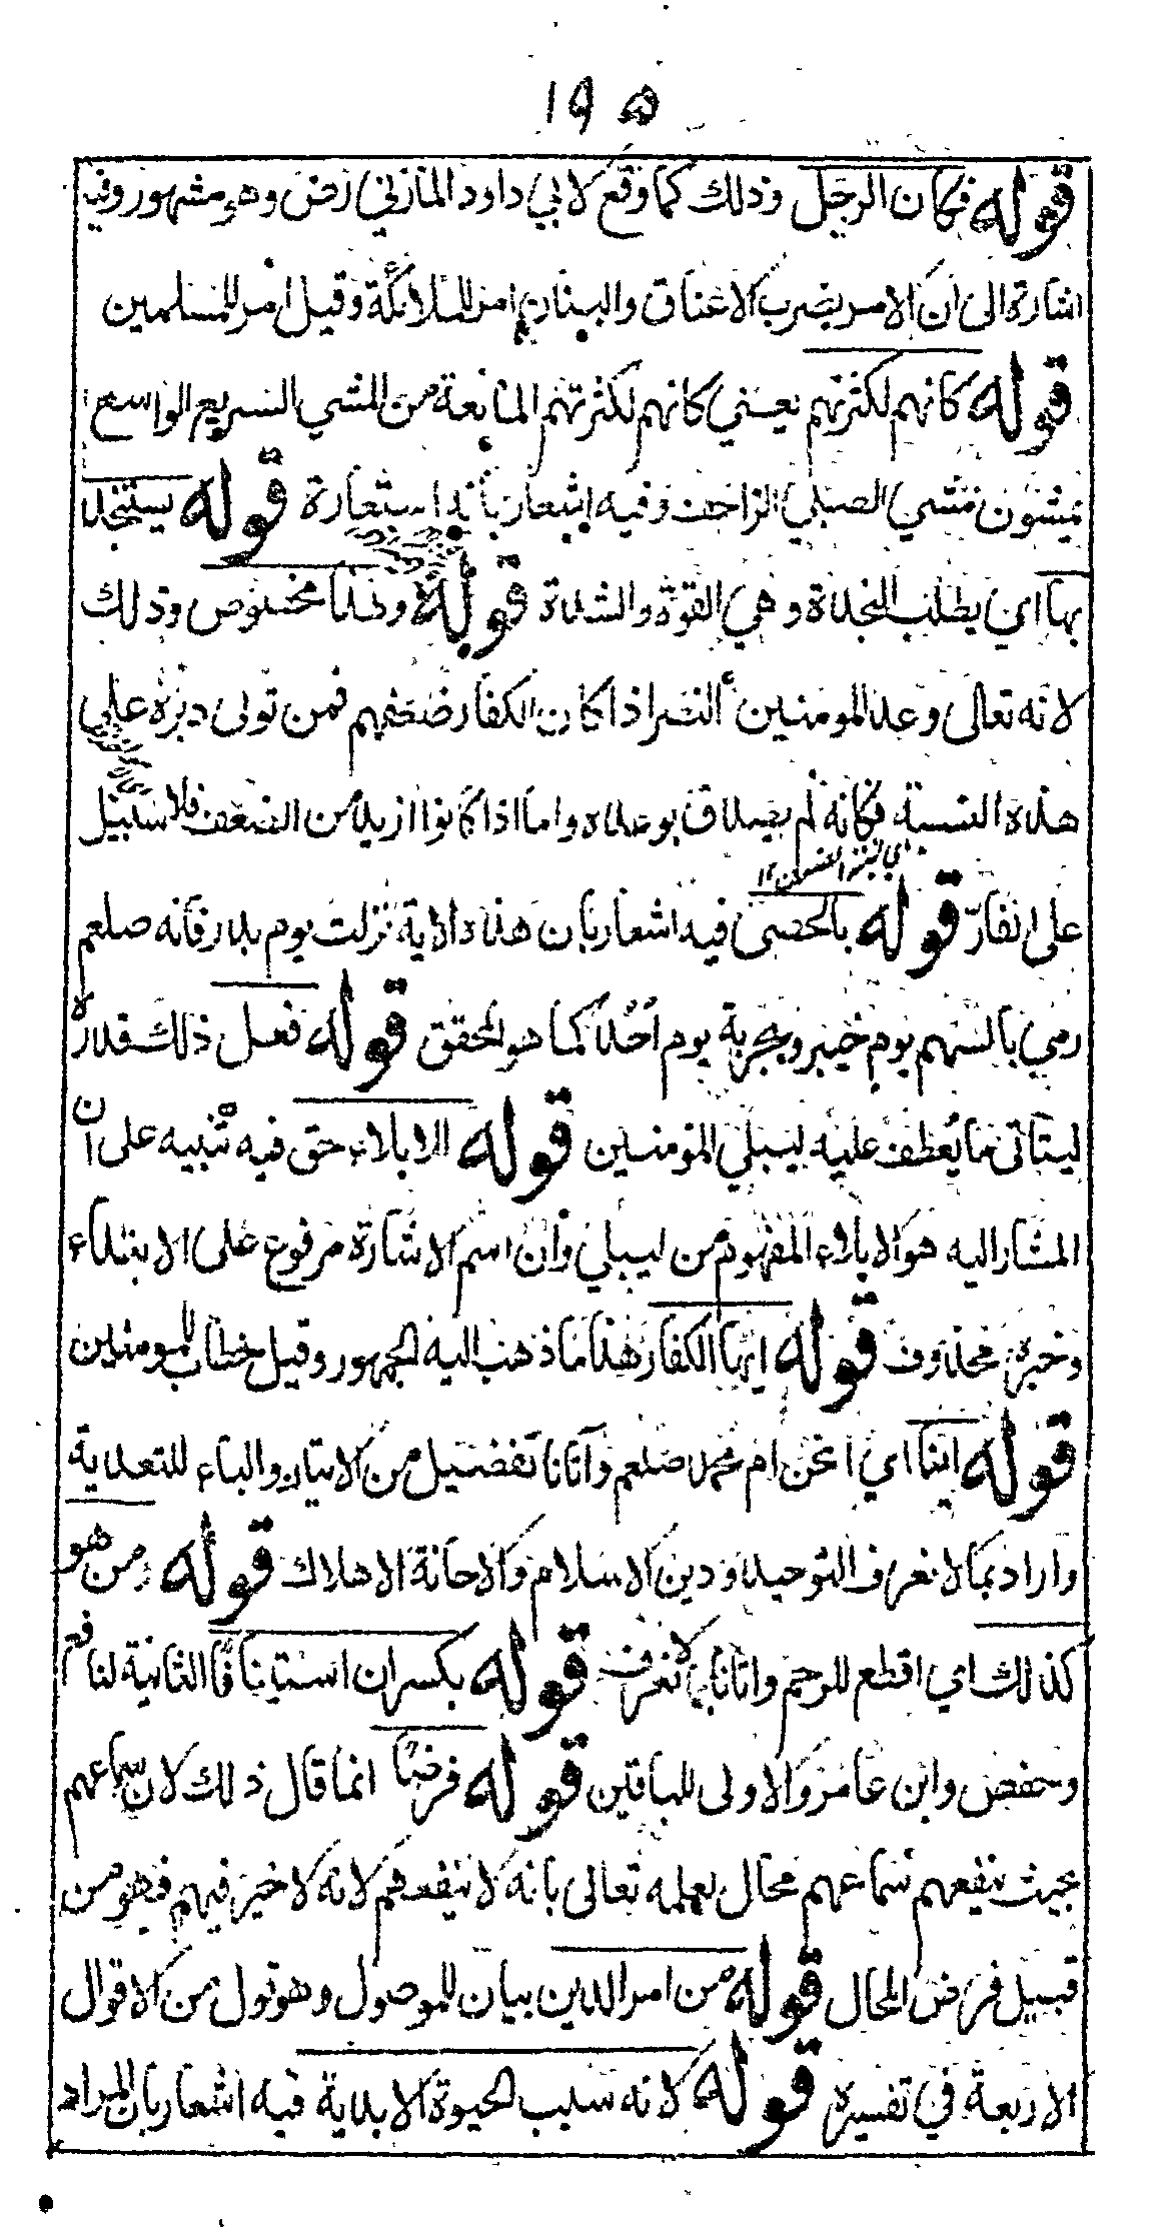 ١٩٥
قوله فكان الرجل وذلك كما وقع لابي داود المازني رض وهو مشهور وفيه
اشارة الى ان الامر بضرب الاعناق والبنان امر للملائكة وقيل امر للمسلمين
قوله كانهم لكثرتهم يعني كانهم لكثرتهم المانعة من المشي السريع الواسع
يمشون مشي الصبي الزاحف وفيه اشعار بانه استعارة قوله يستنجد
بها اي يطلب النجدة وهي القوة والشدة قوله وهذا مخصوص وذلك
لانه تعالى وعد المومنين النصر اذا كان الكفار ضعفهم فمن تولى دبره على
هذه النسبة فكانه لم يصدق بوعده واما اذا كانوا ازيد من الضعف فلا سبيل
على انفار قوله بالحصى فيه اشعار بان هذه الاية نزلت يوم بدر فانه صلعم
اي قبضة الحصى ١٢
رمي بالسهم يوم خيبر وبحربة يوم احد كما هو المحقق قوله فعل ذلك قدره
ليتاتى ما يعطف عليه ليبلي المومنين قوله الابلاء حق فيه تنبيه على ان
المشار اليه هو الابلاء المفهوم من ليبلي وان اسم الاشارة مرفوع على الابتداء
وخبره محذوف قوله ايها الكفار هذا ما ذهب اليه الجمهور وقيل خطاب للمومنين
قوله اينا اي انحن ام محمد صلعم وآتانا تفضيل من الاتيان والباء للتعدية
واراد بما لا نعرف التوحيد ودين الاسلام والاحانة الاهلاك قوله من هو
كذلك اي اقطع للرحم واتانا بما لا نعرف قوله بكسر ان استينافا الثانية لنافع
وحفص وابن عامر والاولى للباقين قوله فرضا انما قال ذلك لان سماعهم
بحيث ينفعهم سماعهم محال بعلمه تعالى بانه لا ينفعهم لانه لا خير فيهم فهو من
قبيل فرض المحال قوله من امر الدين بيان للموصول وهو قول من الاقوال
الاربعة في تفسيره قوله لانه سبب الحيوة الابدية فيه اشعار بان المراد